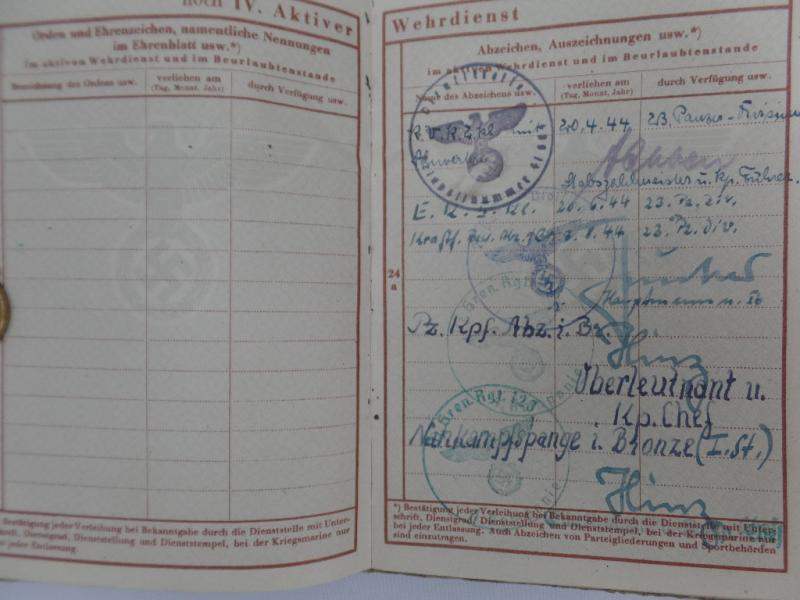 noch IV. Aktiver
Orden und Ehrenzeichen, namentliche Nennungen
im Ehrenblatt usw.*)
im aktiven Wehrdienst und im Beurlaubtenstande
Bezeichnung des Ordens usw.
verliehen am
(Tag, Monat, Jahr)
durch Verfügung usw.
Bestätigung jeder Verleihung bei Bekanntgabe durch die Dienststelle mit Unter-
schrift, Dienstgrad, Dienststellung und Dienststempel, bei der Kriegsmarine nur
jeder Entlassung.
Wehrdienst
Abzeichen, Auszeichnungen usw.*)
im aktiven Wehrdienst und im Beurlaubtenstande
Name des Abzeichens usw.
verliehen am
(Tag, Monat, Jahr)
durch Verfügung usw.
K.V.K. 2. Kl. mit 20.4.44 23. Panzer-Division
Stabszahlmeister u. Kp. Führer.
E.K. 2. Kl. 20.6.44 23. Pz. Div.
Kraftf. Bew. Abz. 8.44 23. Pz. Div.
24
a
Hauptmann u.
Pz. Kpf. Abz. i. Br.
Hinz
Oberleutnant u.
Kp. Chef
Gren. Rgt. 128
Nahkampfspange i. Bronze (I. St.)
Hinz
*) Bestätigung jeder Verleihung bei Bekanntgabe durch die Dienststelle mit Unter-
schrift, Dienstgrad, Dienststellung und Dienststempel, bei der Kriegsmarine nur
bei jeder Entlassung. Auch Abzeichen von Parteigliederungen und Sportbehörden
sind einzutragen.